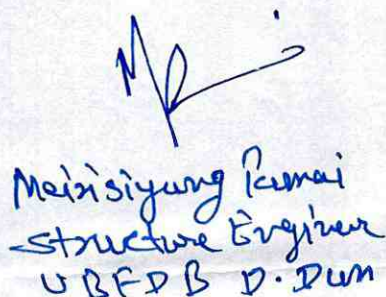 Meirisiyang Pamei
Structure Engineer
UBFDB D.Dun